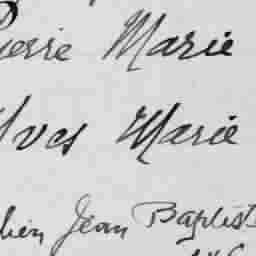 Pierre Marie
Yves Marie
Jean Baptist